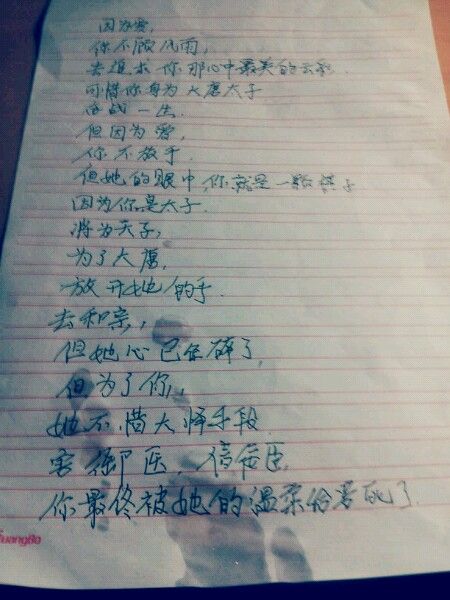 因为爱，
你不顾风雨，
去追求你那心中最美的云彩.
可惜你身为大唐太子
奋战一生.
但因为爱，
你不放手.
但她的眼中你就是一颗棋子
因为你是太子.
将为天子，
为了大唐，
放开她的手.
去和亲，
但她心已经碎了，
但为了你，
她不惜大怿手段.
害御医，信佞臣，
你最终被她的温柔给害死了.
GuangBo